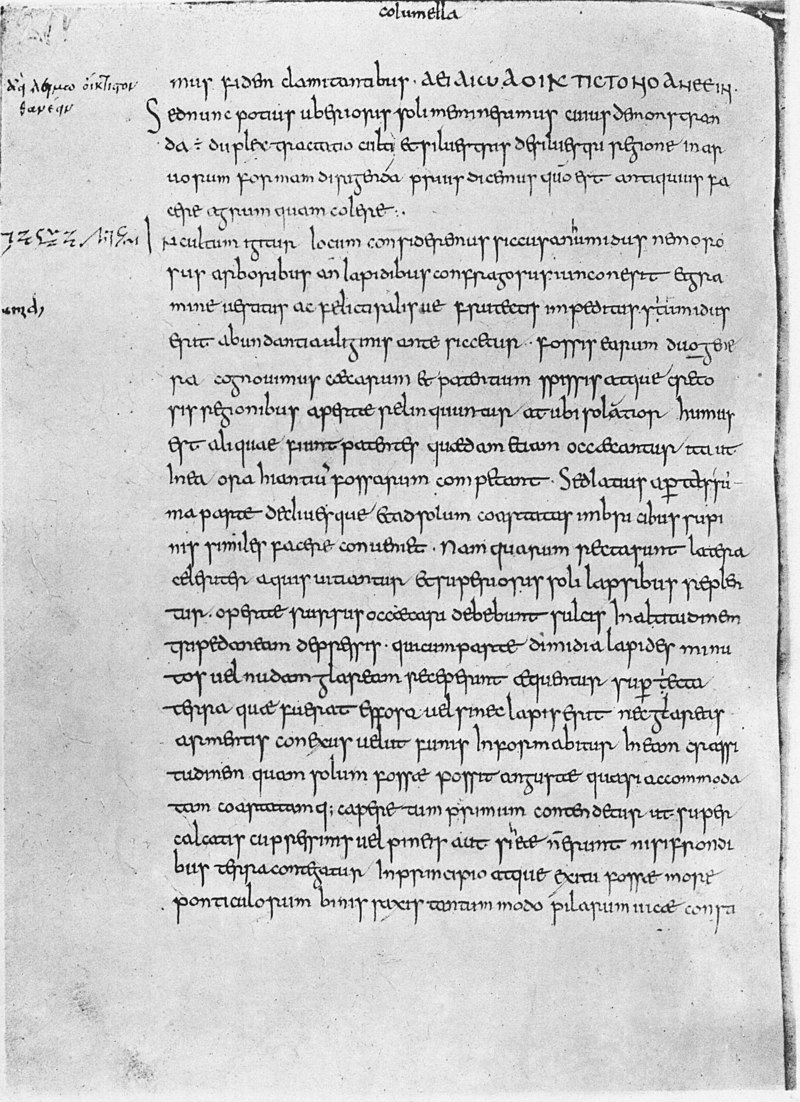 columella
mus fidem clamitantibus · ΛΕΙ ΛΙCѠ ΛΟΙΚΤΙCΤΟΝ ΘΑΝΕΕΙΝ.
Sed nunc potius uberioris soli meminerimus cuius demonstran
da ÷ duplex tractatio culti et siluestris de siluestri regione in ar
uorum formam dirigenda prius dicemus quō est antiquius fa
cere agrum quam colere :.
Incultum igitur locum consideremus siccus an umidus nemoro
sus arboribus an lapidibus confragosus iunco ne sit et gra
mine uestitus ac felictis alisue frutectis impeditus. si umidus
erit abundantia uliginis ante siccetur · fossis earum duo gene
ra cognouimus cæcarum et patentium spissis atque creto
sis regionibus apertæ relinquuntur at ubi solutior humus
est aliquae fiunt patentes quædam etiam occæcantur ita ut
In ea ora hiantiū fossarum competant · Sed latius apertas sū
ma parte decliuesque et ad solum coartatas imbricibus supi
nis similes facere conueniet · Nam quarum recta sunt latera
celeriter aquis uitiantur et superioris soli lapsibus replen
tur · opertæ rursus occæcari debebunt sulcis In altitudinem
tripedaneam depressis · qui cum parte dimidia lapides minu
tos uel nudam glaream receperunt æquentur super iecta
terra quæ fuerat effossa uel si nec lapis erit nec glarea
sarmentis conexus uelut funis Informabitur In eam crassi
tudinem quam solum fossæ possit angustæ quasi accommoda
tam coartatamq; capere tum primum contendetur ut super
calcatis cupressinis uel pineis aut si eæ n̄ erunt nisi frondi
bus terra contegatur In principio atque exitu fossæ more
ponticulorum binis saxis tantum modo pilarum uice consti